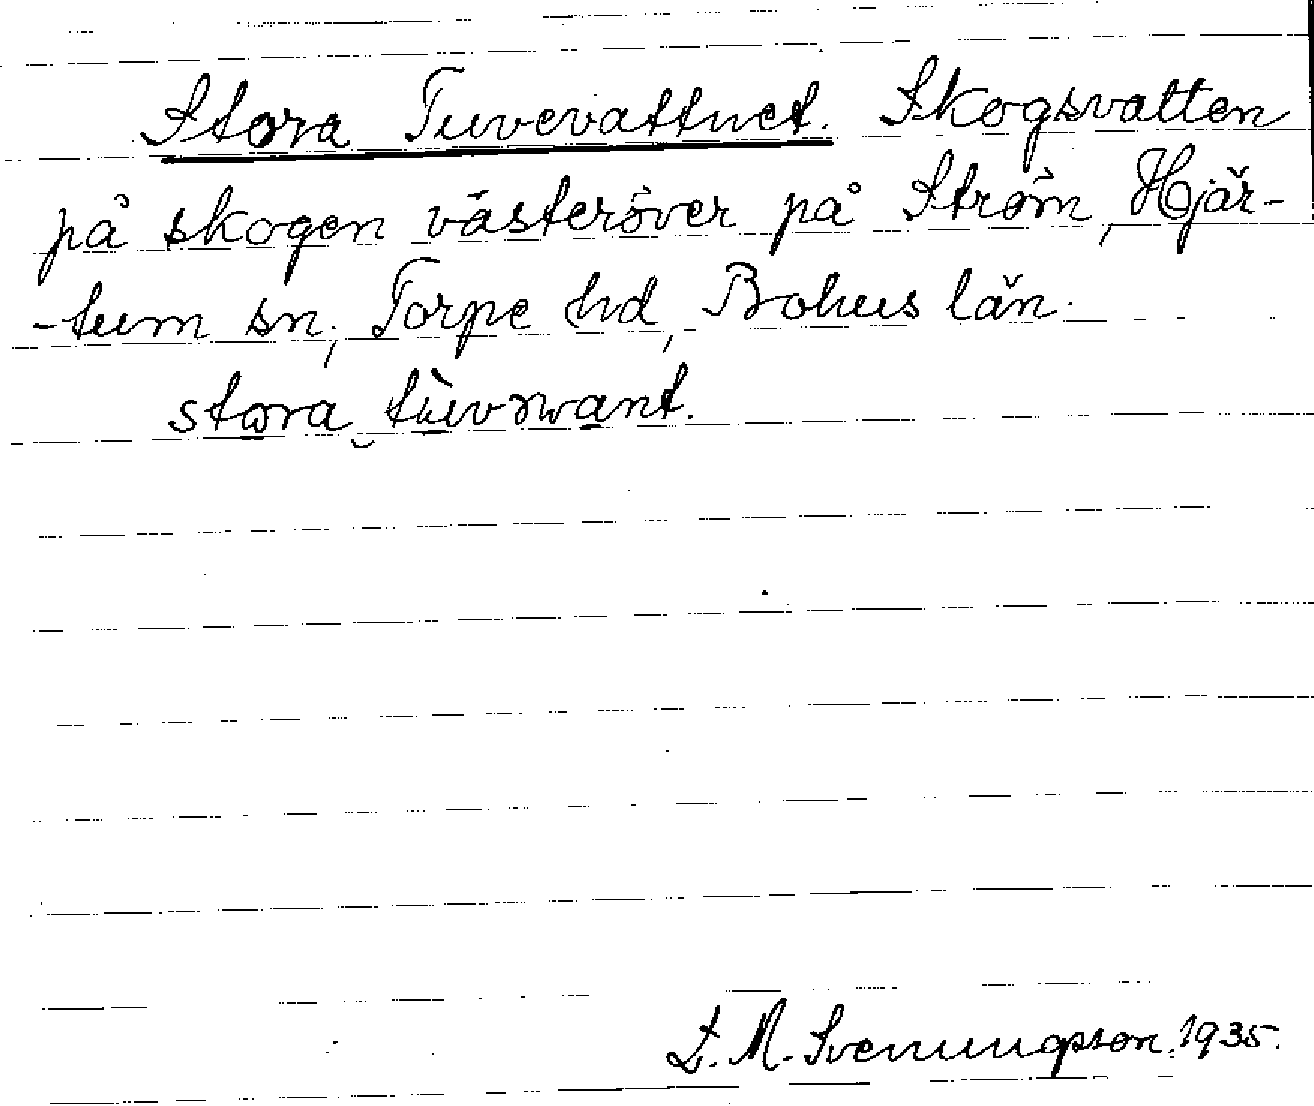 Stora Tuvevattnet. Skogsvatten
på skogen västeröver på Ström, Hjär-
-tum sn, Torpe hd, Bohus län.
stora
S. M. Svenungsson. 1935.